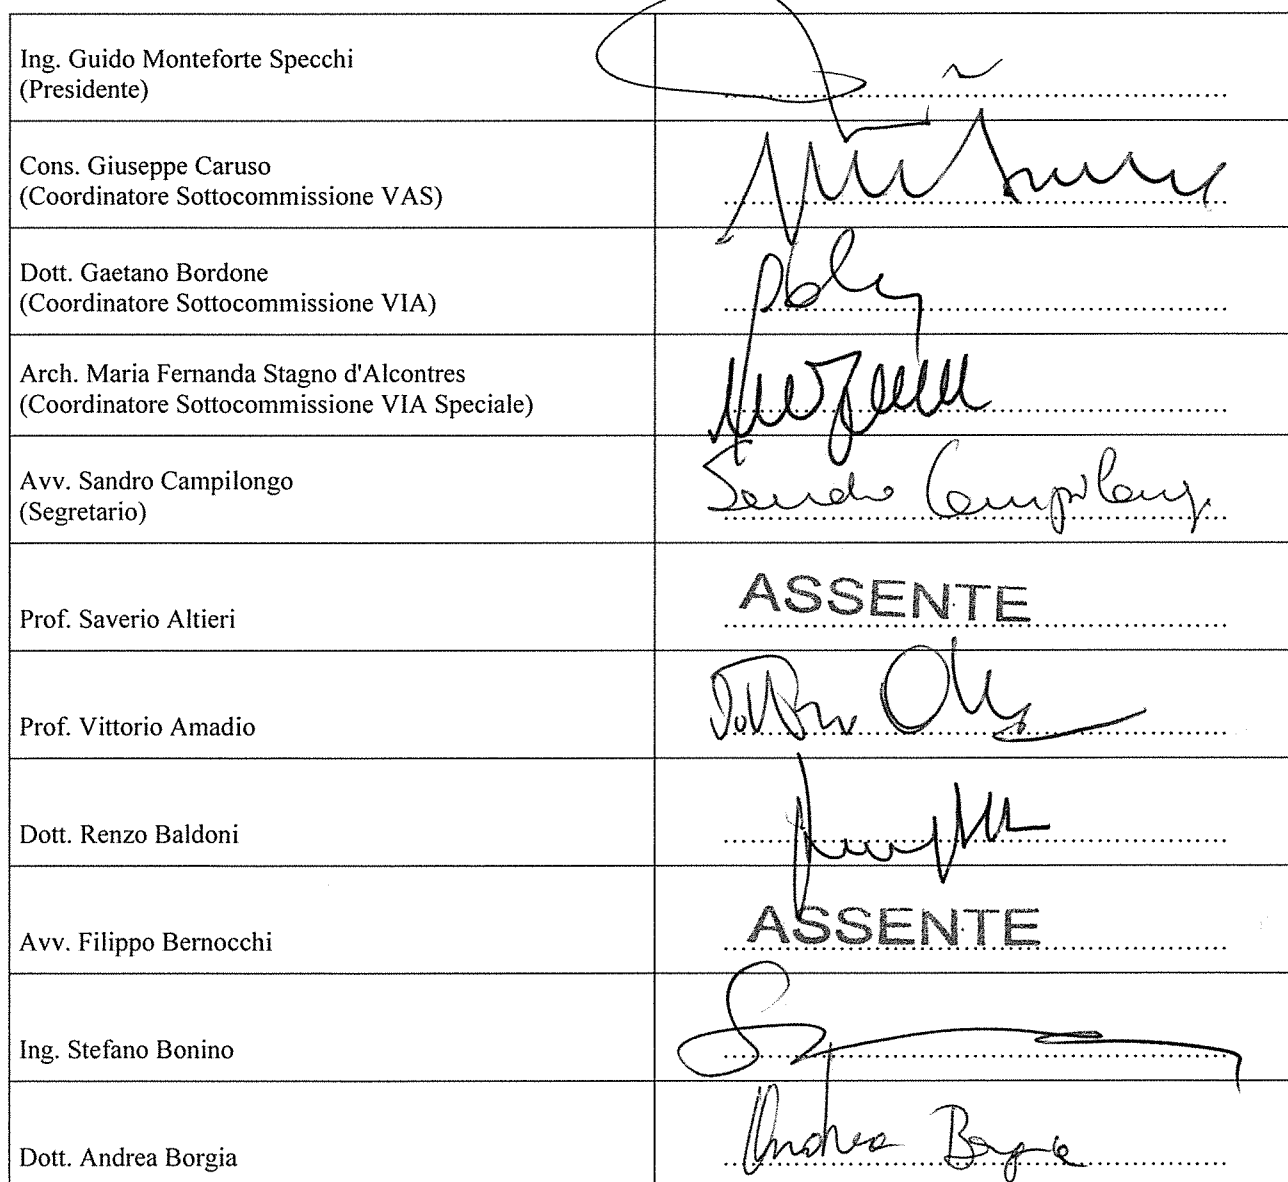 Ing. Guido Monteforte Specchi
(Presidente)
Cons. Giuseppe Caruso
(Coordinatore Sottocommissione VAS)
Dott. Gaetano Bordone
(Coordinatore Sottocommissione VIA)
Arch. Maria Fernanda Stagno d'Alcontres
(Coordinatore Sottocommissione VIA Speciale)
Avv. Sandro Campilongo
(Segretario)
Sandro Campilongo
Prof. Saverio Altieri
ASSENTE
Prof. Vittorio Amadio
Dott. Renzo Baldoni
Avv. Filippo Bernocchi
ASSENTE
Ing. Stefano Bonino
Dott. Andrea Borgia
Andrea Borgia